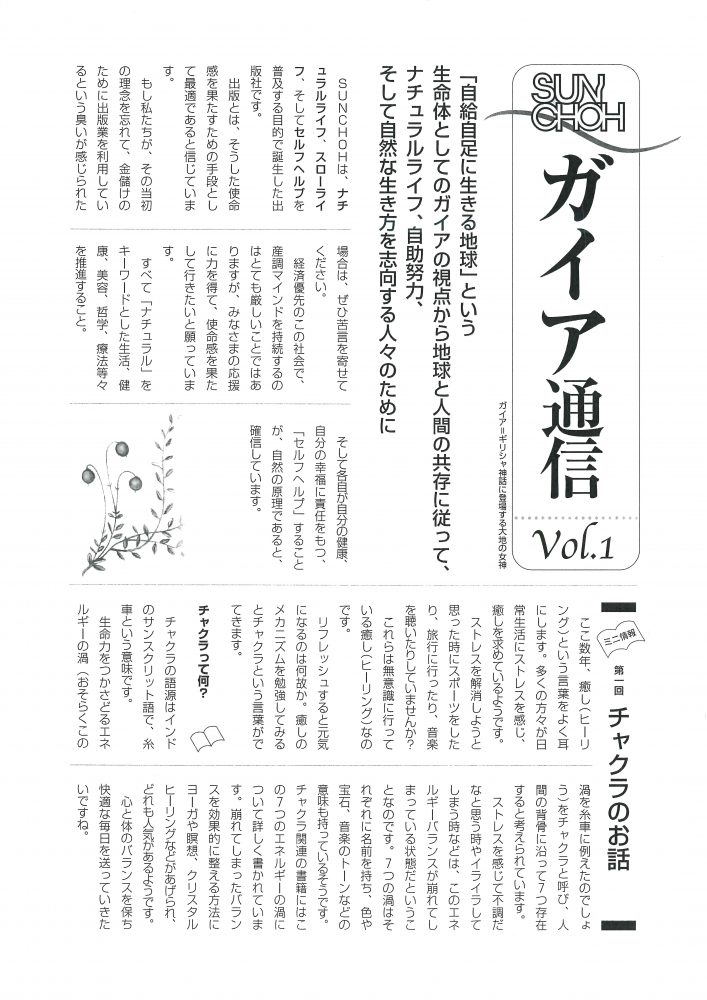 SUN
CHOH
ガイア通信
Vol.1
ガイア=ギリシャ神話に登場する大地の女神
「自給自足に生きる地球」という
生命体としてのガイアの視点から地球と人間の共存に従って、
ナチュラルライフ、自助努力、
そして自然な生き方を志向する人々のために
SUNCHOHは、ナチ
ュラルライフ、スローライ
フ、そしてセルフヘルプを
普及する目的で誕生した出
版社です。
出版とは、そうした使命
感を果たすための手段とし
て最適であると信じていま
す。
もし私たちが、その当初
の理念を忘れて、金儲けの
ために出版業を利用してい
るという臭いが感じられた
場合は、ぜひ苦言を寄せて
ください。
経済優先のこの社会で、
産調マインドを持続するの
はとても厳しいことではあ
りますが、みなさまの応援
に力を得て、使命感を果た
して行きたいと願っていま
す。
すべて「ナチュラル」を
キーワードとした生活、健
康、美容、哲学、療法等々
を推進すること。
そして各自が自分の健康、
自分の幸福に責任をもつ、
「セルフヘルプ」すること
が、自然の原理であると、
確信しています。
ミニ情報
第一回
チャクラのお話
ここ数年、癒し(ヒーリ
ング)という言葉をよく耳
にします。多くの方々が日
常生活にストレスを感じ、
癒しを求めているようです。
ストレスを解消しようと
思った時にスポーツをした
り、旅行に行ったり、音楽
を聴いたりしていませんか?
これらは無意識に行って
いる癒し(ヒーリング)なの
です。
リフレッシュすると元気
になるのは何故か。癒しの
メカニズムを勉強してみる
とチャクラという言葉がで
てきます。
チャクラって何?
チャクラの語源はインド
のサンスクリット語で、糸
車という意味です。
生命力をつかさどるエネ
ルギーの渦(おそらくこの
渦を糸車に例えたのでしょ
う)をチャクラと呼び、人
間の背骨に沿って7つ存在
すると考えられています。
ストレスを感じて不調だ
なと思う時やイライラして
しまう時などは、このエネ
ルギーバランスが崩れてし
まっている状態だというこ
となのです。7つの渦はそ
れぞれに名前を持ち、色や
宝石、音楽のトーンなどの
意味も持っているそうです。
チャクラ関連の書籍にはこ
の7つのエネルギーの渦に
ついて詳しく書かれていま
す。崩れてしまったバラン
スを効果的に整える方法に
ヨーガや瞑想、クリスタル
ヒーリングなどがあげられ、
どれも人気があるようです。
心と体のバランスを保ち
快適な毎日を送っていきた
いですね。